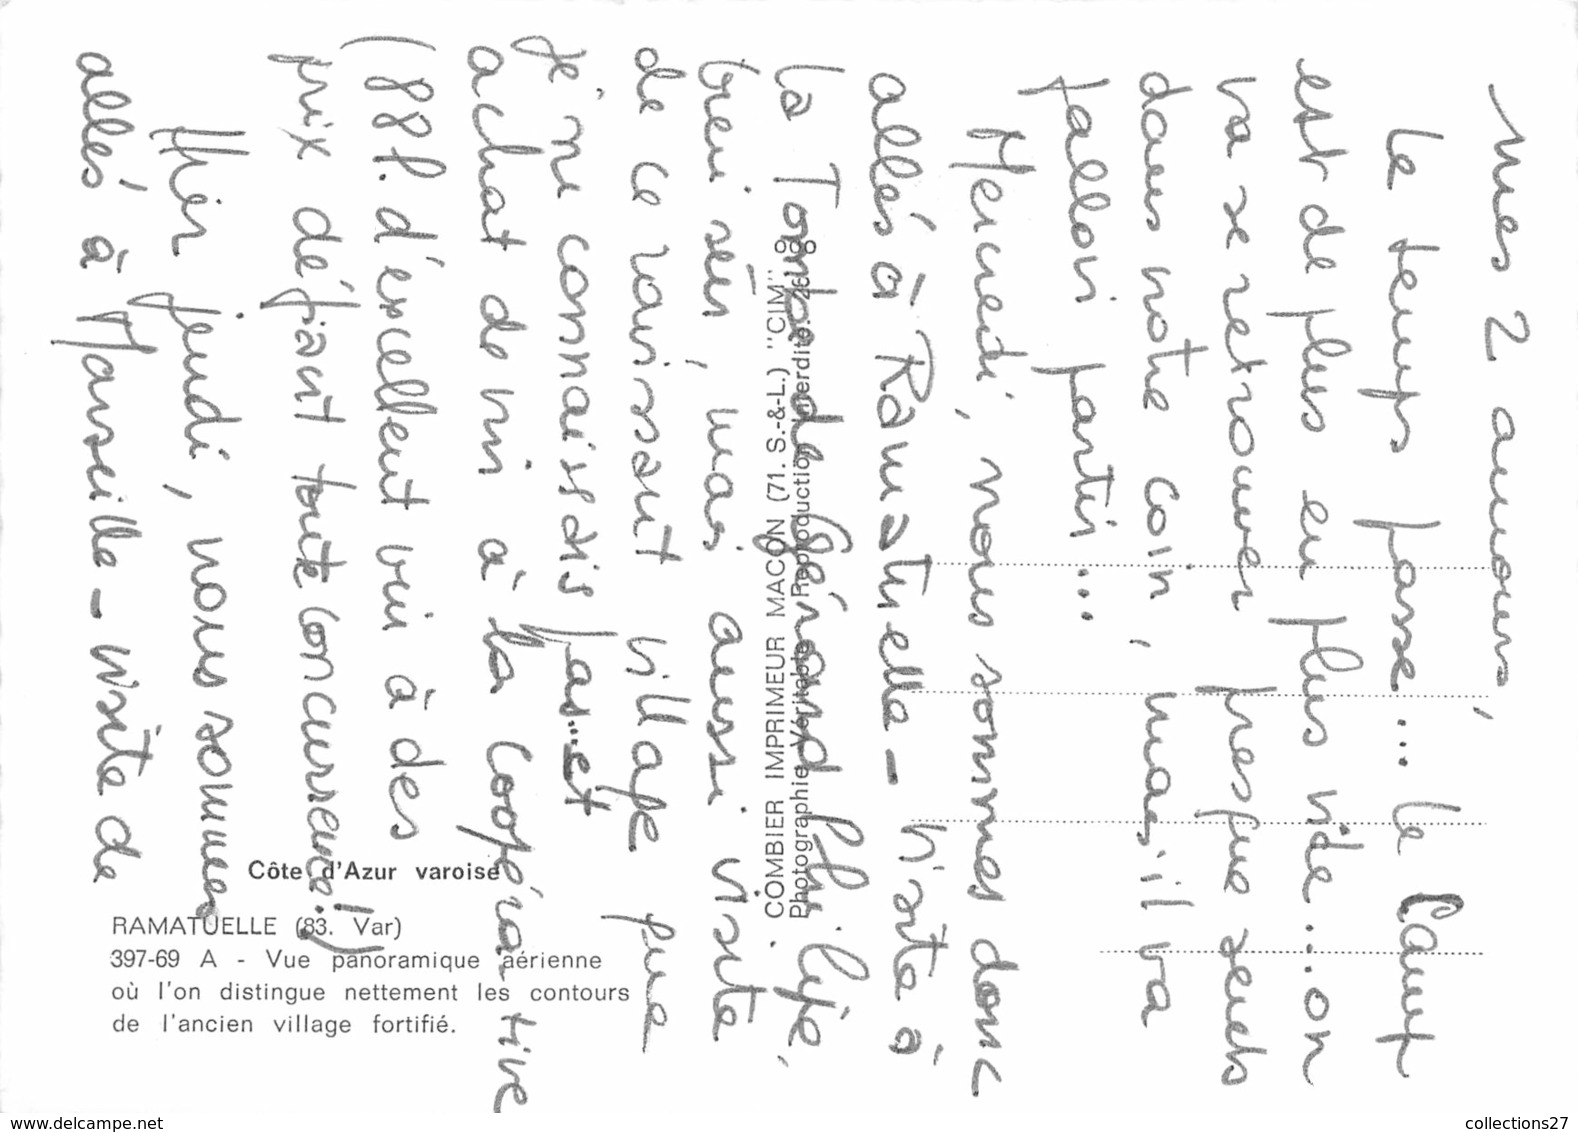 mes 2 amours,
Le temps passe... le Camp
est de plus en plus vide... on
va se retrouver presque seuls
dans notre coin, mais il va
falloir partir...
Mercredi, nous sommes donc
allés à Ramatuelle - visite à
la Tombe de Gérard Philipe,
bien sûr, mais aussi visite
de ce ravissant village que
je ne connaissais pas... et
achat de vin à la Coopérative
(88f. d'excellent vin à des
prix défiant toute concurrence!)
Hier jeudi, nous sommes
allés à Marseille - visite de
COMBIER IMPRIMEUR MACON (71. S.-&-L.) "CIM"
Photographie Véritable. Reproduction interdite.
Côte d'Azur varoise
RAMATUELLE (83. Var)
397-69 A - Vue panoramique aérienne
où l'on distingue nettement les contours
de l'ancien village fortifié.
www.delcampe.net
collections27